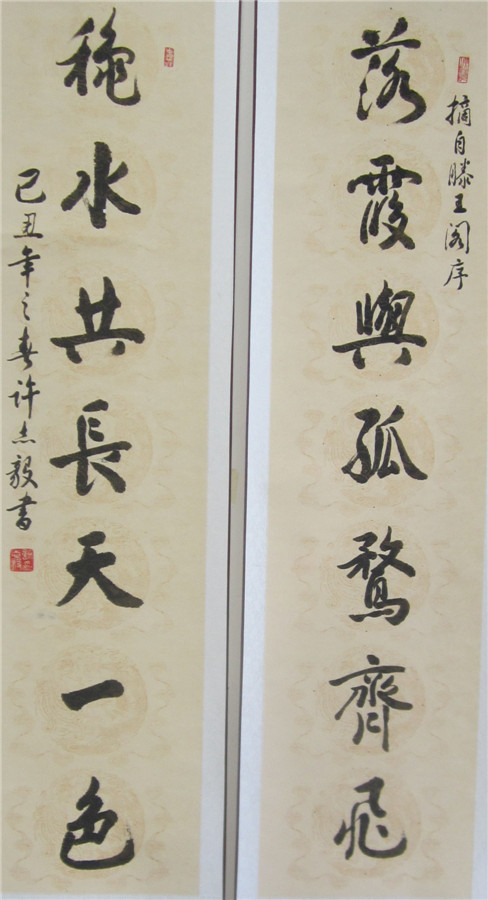 摘自滕王阁序
落霞與孤鶩齊飛
穐水共長天一色
己丑年之春许志毅書